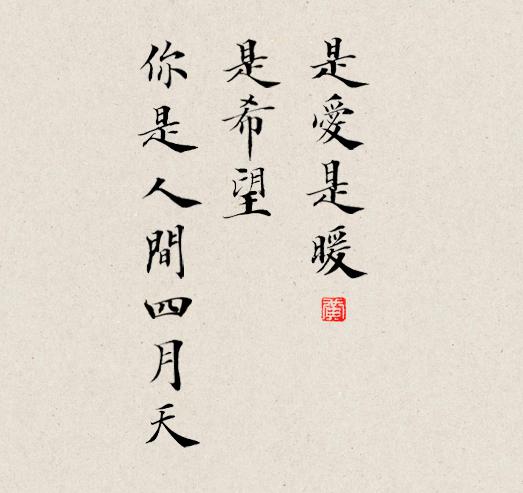 是愛是暖
是希望
你是人間四月天